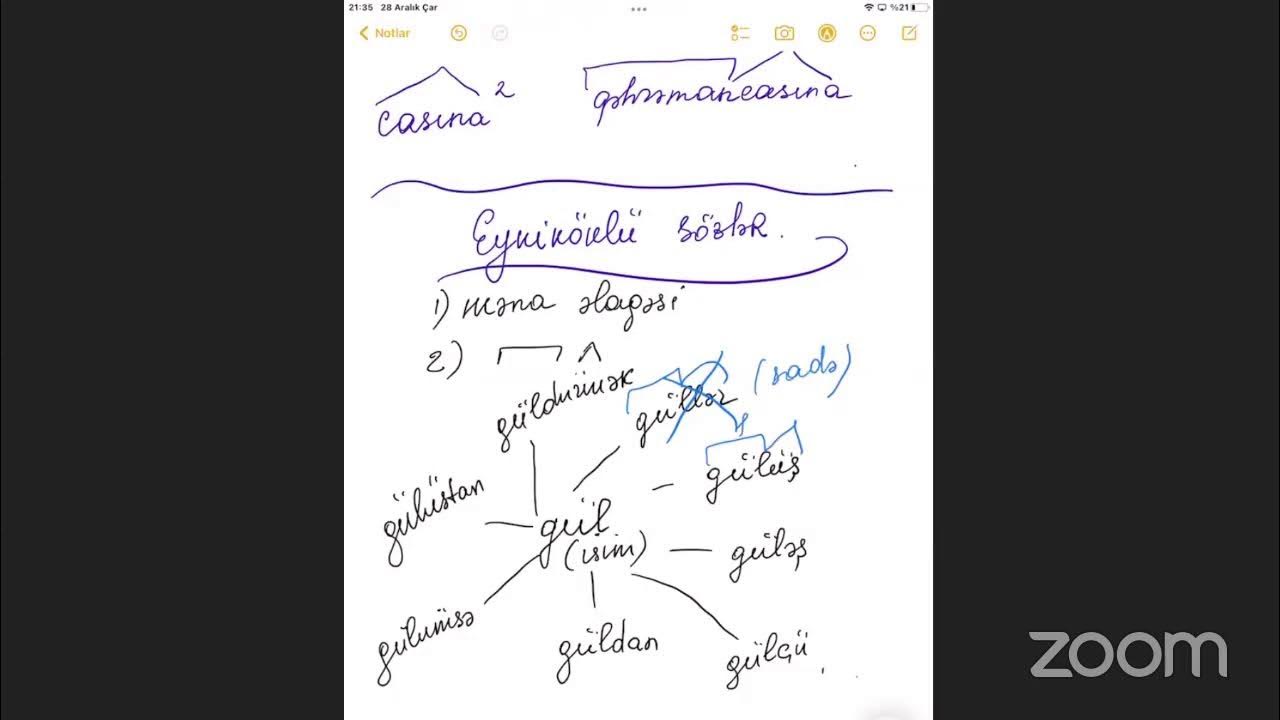 21:35 28 Aralık Çar
%21
Notlar
casına 2 qəhrəmancasına
Eyniköklü sözlər.
1) məna əlaqəsi
2)
güldürmək güllər (sadə)
gülüş
gülüstan
gül
(isim)
güləş
gülümsə
güldan
gülçü
zoom